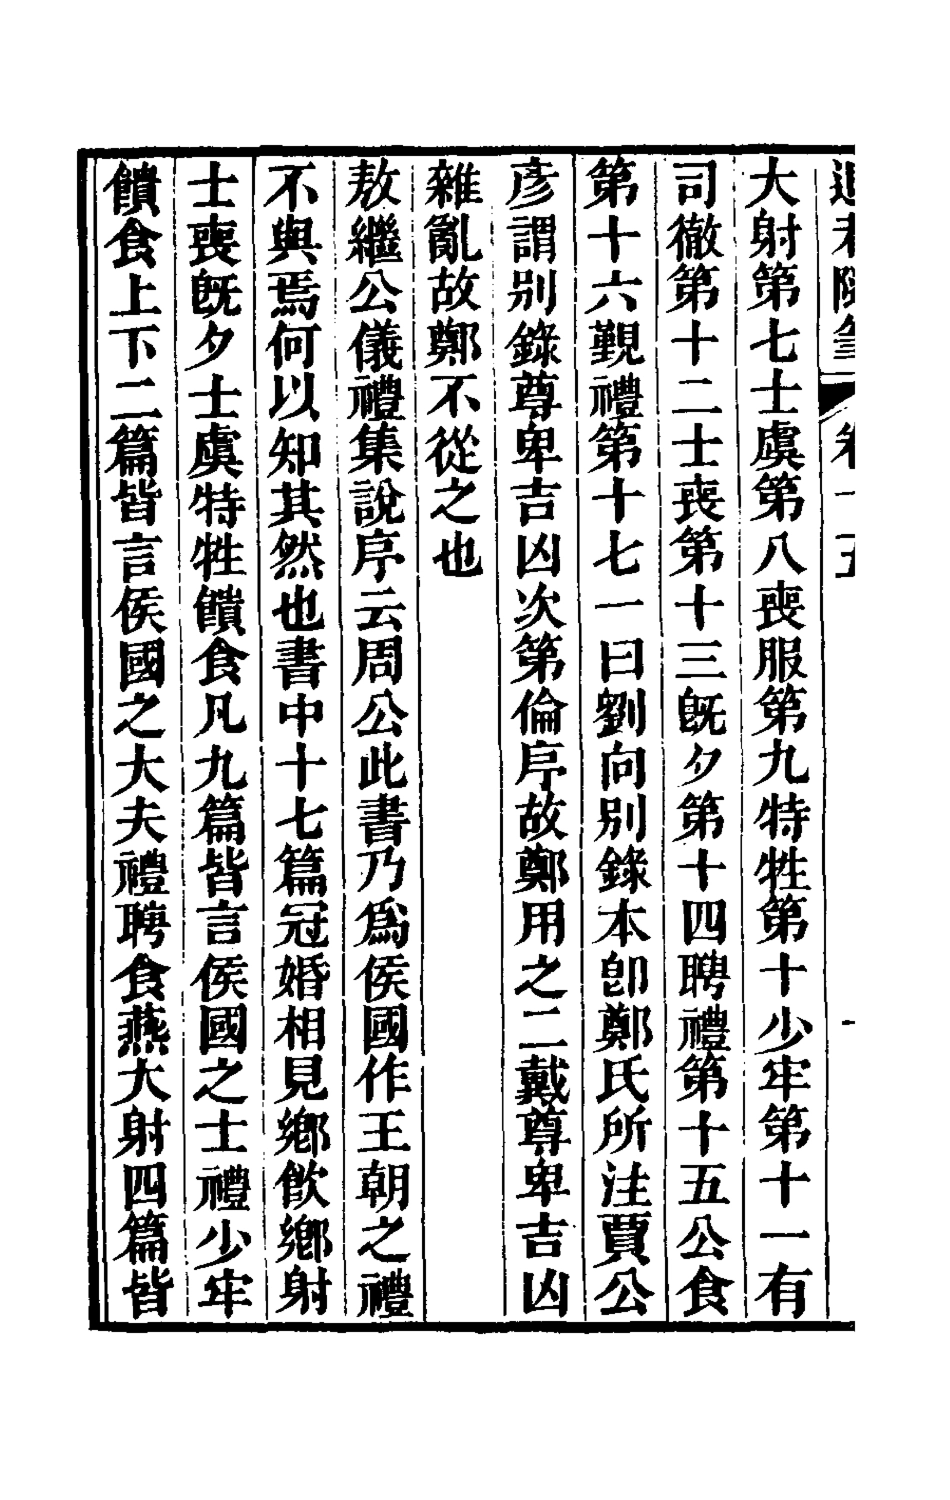 大射第七士虞第八喪服第九特牲第十少牢第十一有
司徹第十二士喪第十三旣夕第十四聘禮第十五公食
第十六覲禮第十七一曰劉向別錄本卽鄭氏所注賈公
彥謂別錄尊卑吉凶次第倫序故鄭用之二戴尊卑吉凶
雜亂故鄭不從之也
敖繼公儀禮集說序云周公此書乃爲侯國作王朝之禮
不與焉何以知其然也書中十七篇冠婚相見鄉飮鄉射
士喪旣夕士虞特牲饋食凡九篇皆言侯國之士禮少牢
饋食上下二篇皆言侯國之大夫禮聘食燕大射四篇皆